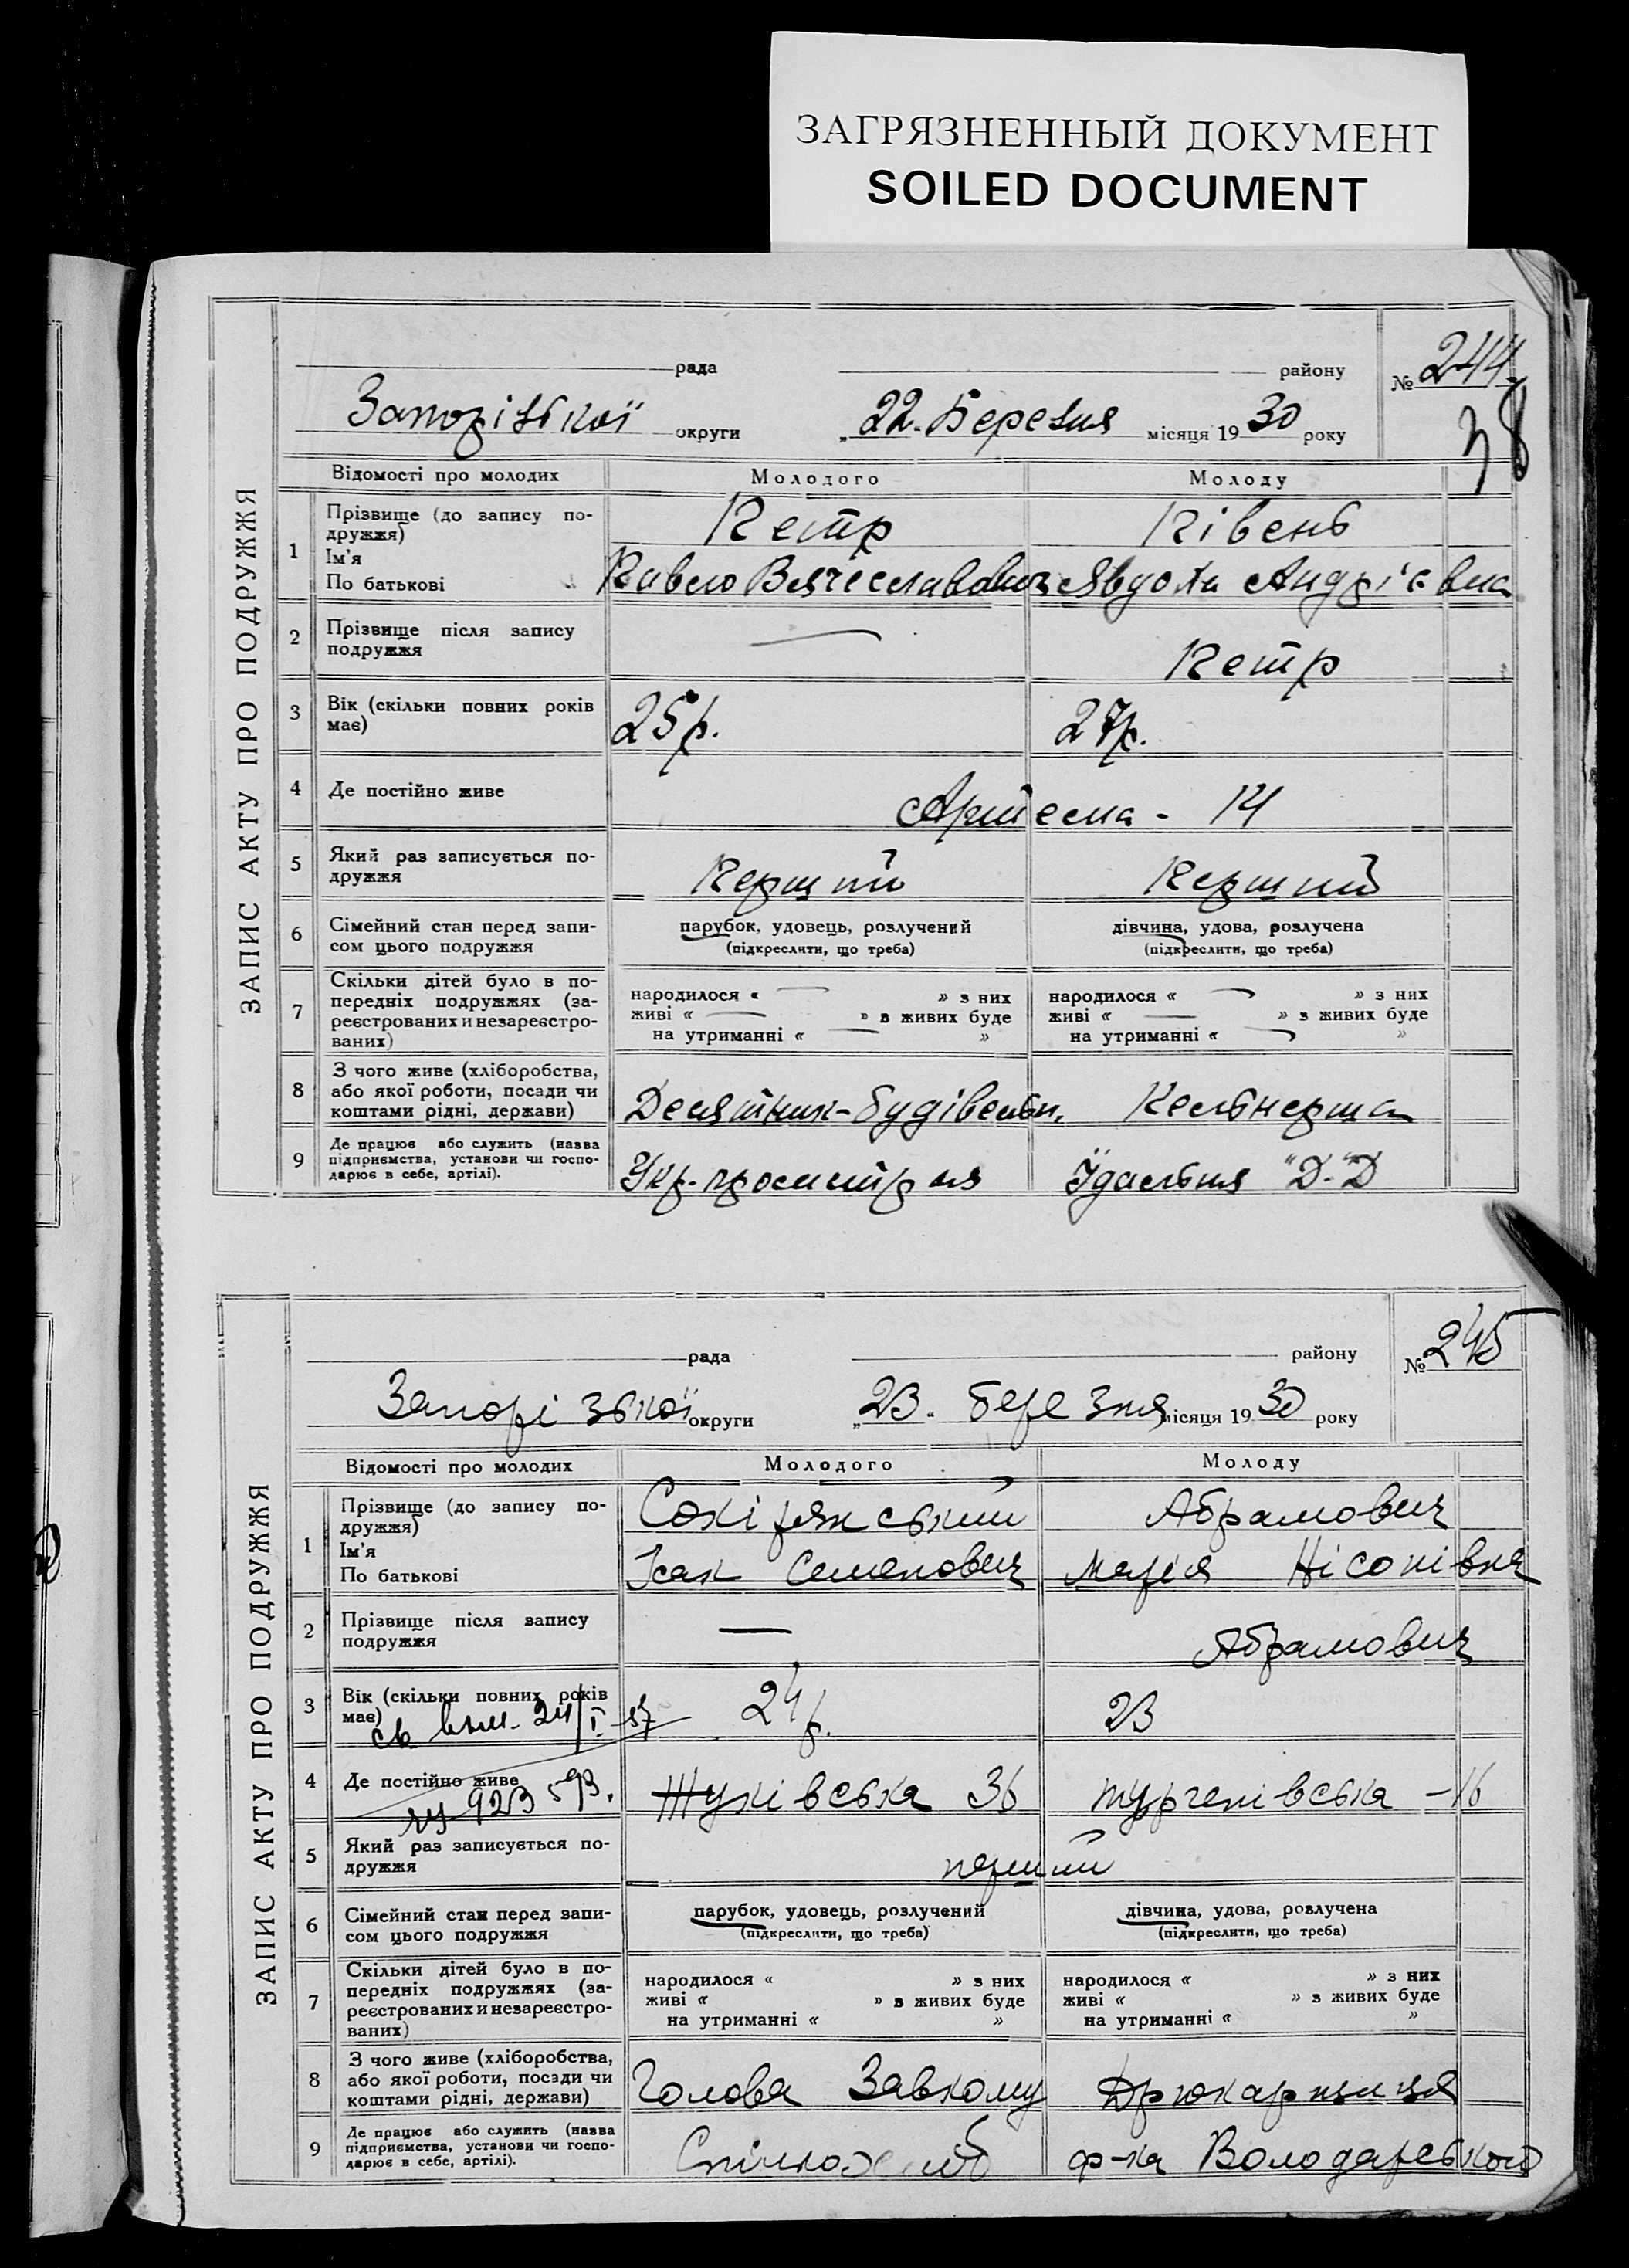 ЗАГРЯЗНЕННЫЙ ДОКУМЕНТ
SOILED DOCUMENT
ЗАПИС АКТУ ПРО ПОДРУЖЖЯ
рада району № 244
38
Запорізької округи „22.“ Березня місяця 1930 року
Відомості про молодих Молодого Молоду
1 Прізвище (до запису по-
дружжя) Петр Півень
Ім'я
По батькові Павло Вячеславович Явдоха Андрієвна
2 Прізвище після запису
подружжя — Петр
3 Вік (скільки повних років
має) 25р. 27р.
4 Де постійно живе Артема - 14
5 Який раз записується по-
дружжя Перший Перший
6 Сімейний стан перед запи-
сом цього подружжя
парубок, удовець, розлучений дівчина, удова, розлучена
(підкреслити, що треба) (підкреслити, що треба)
7 Скільки дітей було в по-
передніх подружжях (за-
реєстрованих и незареєстро-
ваних)
народилося « — » з них народилося « — » з них
живі « — » в живих буде живі « — » з живих буде
на утриманні « — » на утриманні « — »
8 З чого живе (хліборобства,
або якої роботи, посади чи
коштами рідні, держави) Десятник-будівельн. Кельнерша
9 Де працює або служить (назва
підприємства, установи чи госпо-
дарює в себе, артілі). Їдальня "Д.Д
ЗАПИС АКТУ ПРО ПОДРУЖЖЯ
рада району № 245
Запорізької округи „23.“ березня місяця 1930 року
Відомості про молодих Молодого Молоду
1 Прізвище (до запису по-
дружжя) Сокірянський Абрамович
Ім'я
По батькові Ісак Семенович Марія Нісонівна
2 Прізвище після запису
подружжя — Абрамович
3 Вік (скільки повних років
має) 24р. 23
4 Де постійно живе Жуківська 36 Тургенівська -16
5 Який раз записується по-
дружжя перший
6 Сімейний стан перед запи-
сом цього подружжя
парубок, удовець, розлучений дівчина, удова, розлучена
(підкреслити, що треба) (підкреслити, що треба)
7 Скільки дітей було в по-
передніх подружжях (за-
реєстрованих и незареєстро-
ваних)
народилося « » з них народилося « » з них
живі « » в живих буде живі « » з живих буде
на утриманні « » на утриманні « »
8 З чого живе (хліборобства,
або якої роботи, посади чи
коштами рідні, держави) Голова Завкому Друкарниця
9 Де працює або служить (назва
підприємства, установи чи госпо-
дарює в себе, артілі). Спілкохліб ф-ка Володарського